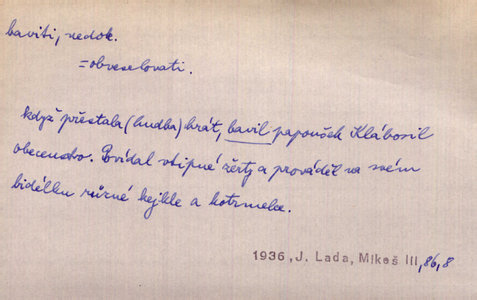 baviti, nedok.
=obveselovati.
když přestala (hudba) hrát, bavil papoušek Klábosil
obecenstvo. Povídal vtipné žerty a prováděl na svém
bidélku různé kejkle a kotrmelce.
1936, J. Lada, Mikeš III, 86, 8